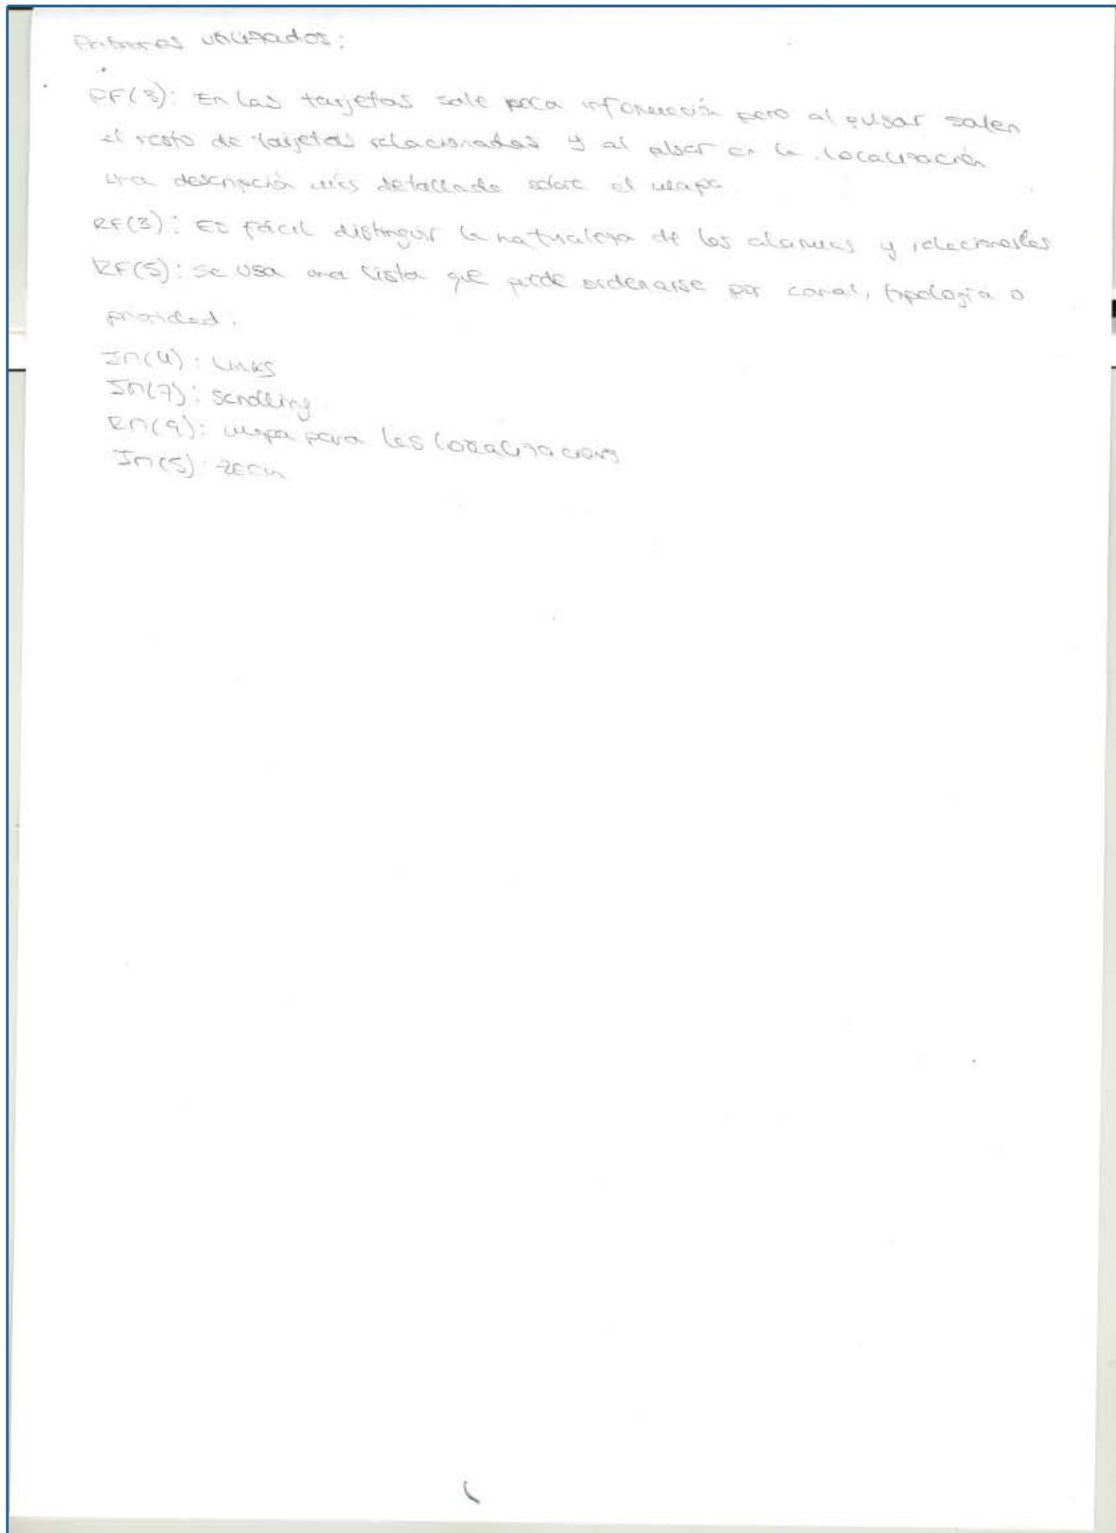 Patrones utilizados:
RF(3): En las tarjetas sale poca información pero al pulsar salen
el resto de tarjetas relacionadas y al pulsar en la localización
una descripción más detallada sobre el mapa
RF(3): Es fácil distinguir la naturaleza de las alarmas y relacionarlas
RF(5): Se usa una lista que puede ordenarse por canal, tipología o
prioridad.
In(4): Links
In(7): Scrolling
mapa para las localizaciones
In(5): zoom